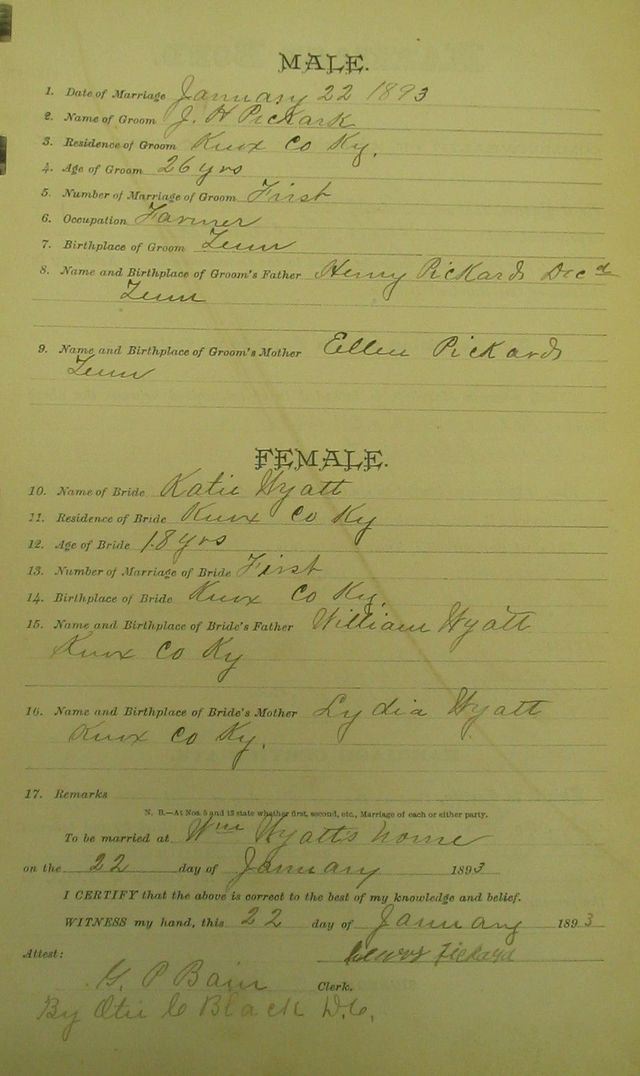 MALE.
1. Date of Marriage January 22 1893
2. Name of Groom J. H Pickark
3. Residence of Groom Knox Co Ky.
4. Age of Groom 26 yrs
5. Number of Marriage of Groom First
6. Occupation Farmer
7. Birthplace of Groom Tenn
8. Name and Birthplace of Groom's Father Henry Pickards Dec d
Tenn
9. Name and Birthplace of Groom's Mother Ellen Pickards
Tenn
FEMALE.
10. Name of Bride Katie Wyatt
11. Residence of Bride Knox Co Ky
12. Age of Bride 18 yrs
13. Number of Marriage of Bride First
14. Birthplace of Bride Knox Co Ky.
15. Name and Birthplace of Bride's Father William Wyatt
Knox Co Ky
16. Name and Birthplace of Bride's Mother Lydia Wyatt
Knox Co Ky.
17. Remarks
N. B.—At Nos. 5 and 13 state whether first, second, etc., Marriage of each or either party.
To be married at Wm Wyatts home
on the 22 day of January 1893
I CERTIFY that the above is correct to the best of my knowledge and belief.
WITNESS my hand, this 22 day of January 1893
Pickard
Attest:
G. P Bain Clerk.
By Otis C Black D.C.